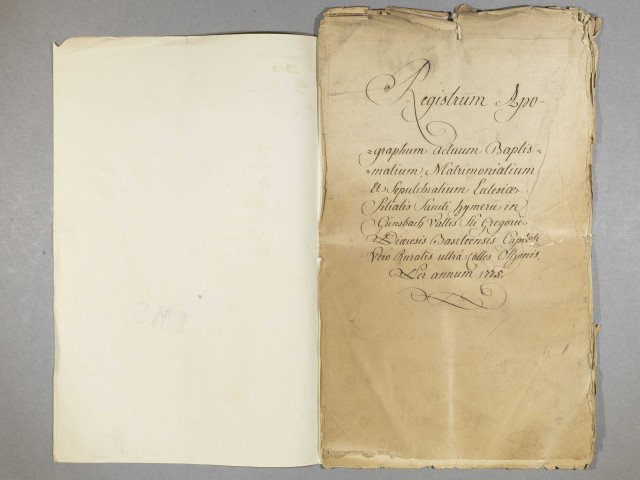 Registrum Apo-
-graphum actuum Baptis-
-malium, Matrimonialium
& Sepulchralium Eclesiæ
Filialis Sancti Hymerii in
Gunsbach Vallis Sti Gregorii
Diœcesis Basileensis Capituli
Vero Ruralis ultra Colles Ottonis
Per annum 1775.